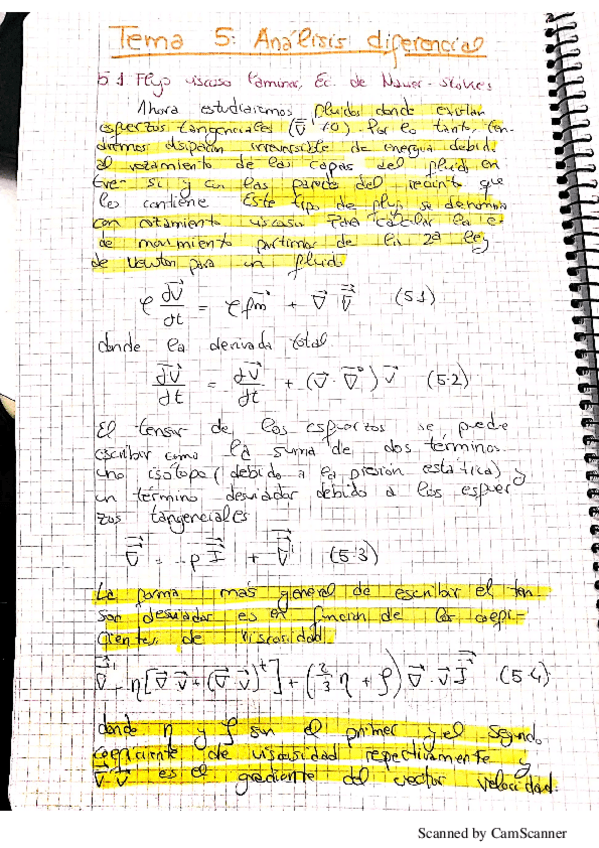 Tema 5: Análisis diferencial
5.1 Flujo viscoso laminar, Ec. de Navier-Stokes
Ahora estudiaremos fluidos donde existan
esfuerzos tangenciales (∇⃗' ≠0). Por lo tanto, ten-
dremos disipación irreversible de energía debido
al rozamiento de las capas del fluido en
tre sí y con las paredes del recinto que
lo contiene. Este tipo de flujo se denomina
con rozamiento viscoso. Para calcular la ec
de movimiento partimos de la 2ª ley
de Newton para un fluido
ρ dV⃗/dt = ρ fm⃗ + ∇⃗ ∇⃗ (5.1)
donde la derivada total
dV⃗/dt = dV⃗/dt + (V⃗ · ∇⃗) V⃗ (5.2)
El tensor de los esfuerzos se puede
escribir como la suma de dos términos
uno isótopo (debido a la presión estática) y
un término desviador debido a los esfuer
zos tangenciales
∇⃗ = -p I⃗ + ∇⃗' (5.3)
La forma más general de escribir el ten-
sor desviador es en función de los coefi-
cientes de viscosidad
∇⃗' = η[∇⃗ V⃗ + (∇⃗ V⃗)^t] + (2/3 η + ρ) ∇⃗ · V⃗ I⃗ (5.4)
donde η y ρ son el primer y el segundo
coeficiente de viscosidad respectivamente y
∇⃗ V⃗ es el gradiente del vector velocidad.
Scanned by CamScanner